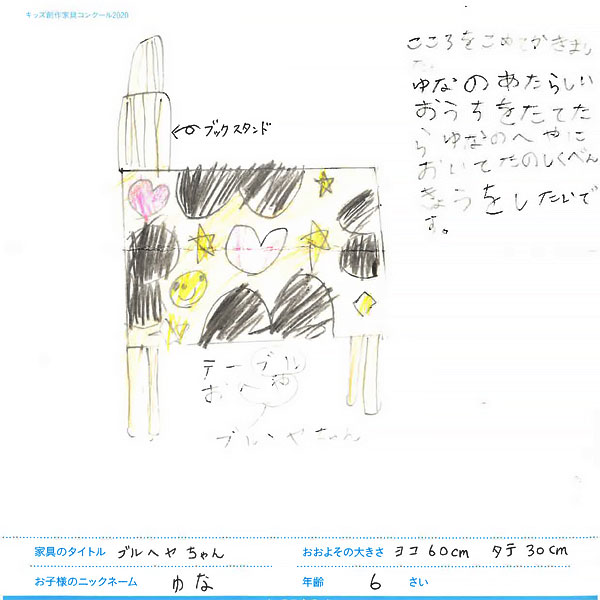 キッズ創作家具コンクール2020
こころをこめてかきまし
た。
ゆなのあたらしい
おうちをたてた
らゆなのへやに
おいてたのしくべん
きょうをしたいで
す。
ブックスタンド
テーブル
おへや
ブルヘヤちゃん
家具のタイトル ブルヘヤちゃん
おおよその大きさ ヨコ60cm タテ30cm
お子様のニックネーム ゆな
年齢 6 さい